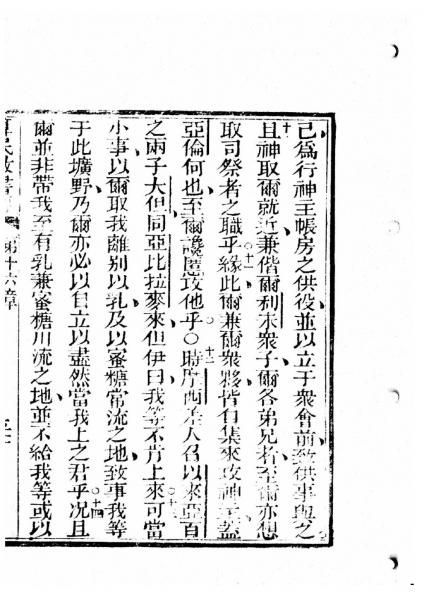 己爲行神主帳房之供役並以立于衆會前致供事與之
十且神取爾就近兼偕爾利未衆子爾各弟兄者至爾亦想
取司祭者之職乎十一緣此爾兼爾衆夥皆自集來攻神主蓋
亞倫何也至爾讒慝說他乎○十二時摩西差人召以來亞百
之兩子大但同亞比拉麥來但伊曰我等不肯上來可當十三
小事以爾取我離別以乳及以蜜糖常流之地致事我等
于此壙野乃爾亦必以自立以盡然當我上之君乎十四况且
爾並非帶我至有乳兼蜜糖川流之地並不給我等或以
第十六章